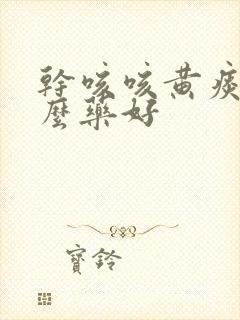 幹咳咳黄痰
麼藥好
寶鈴